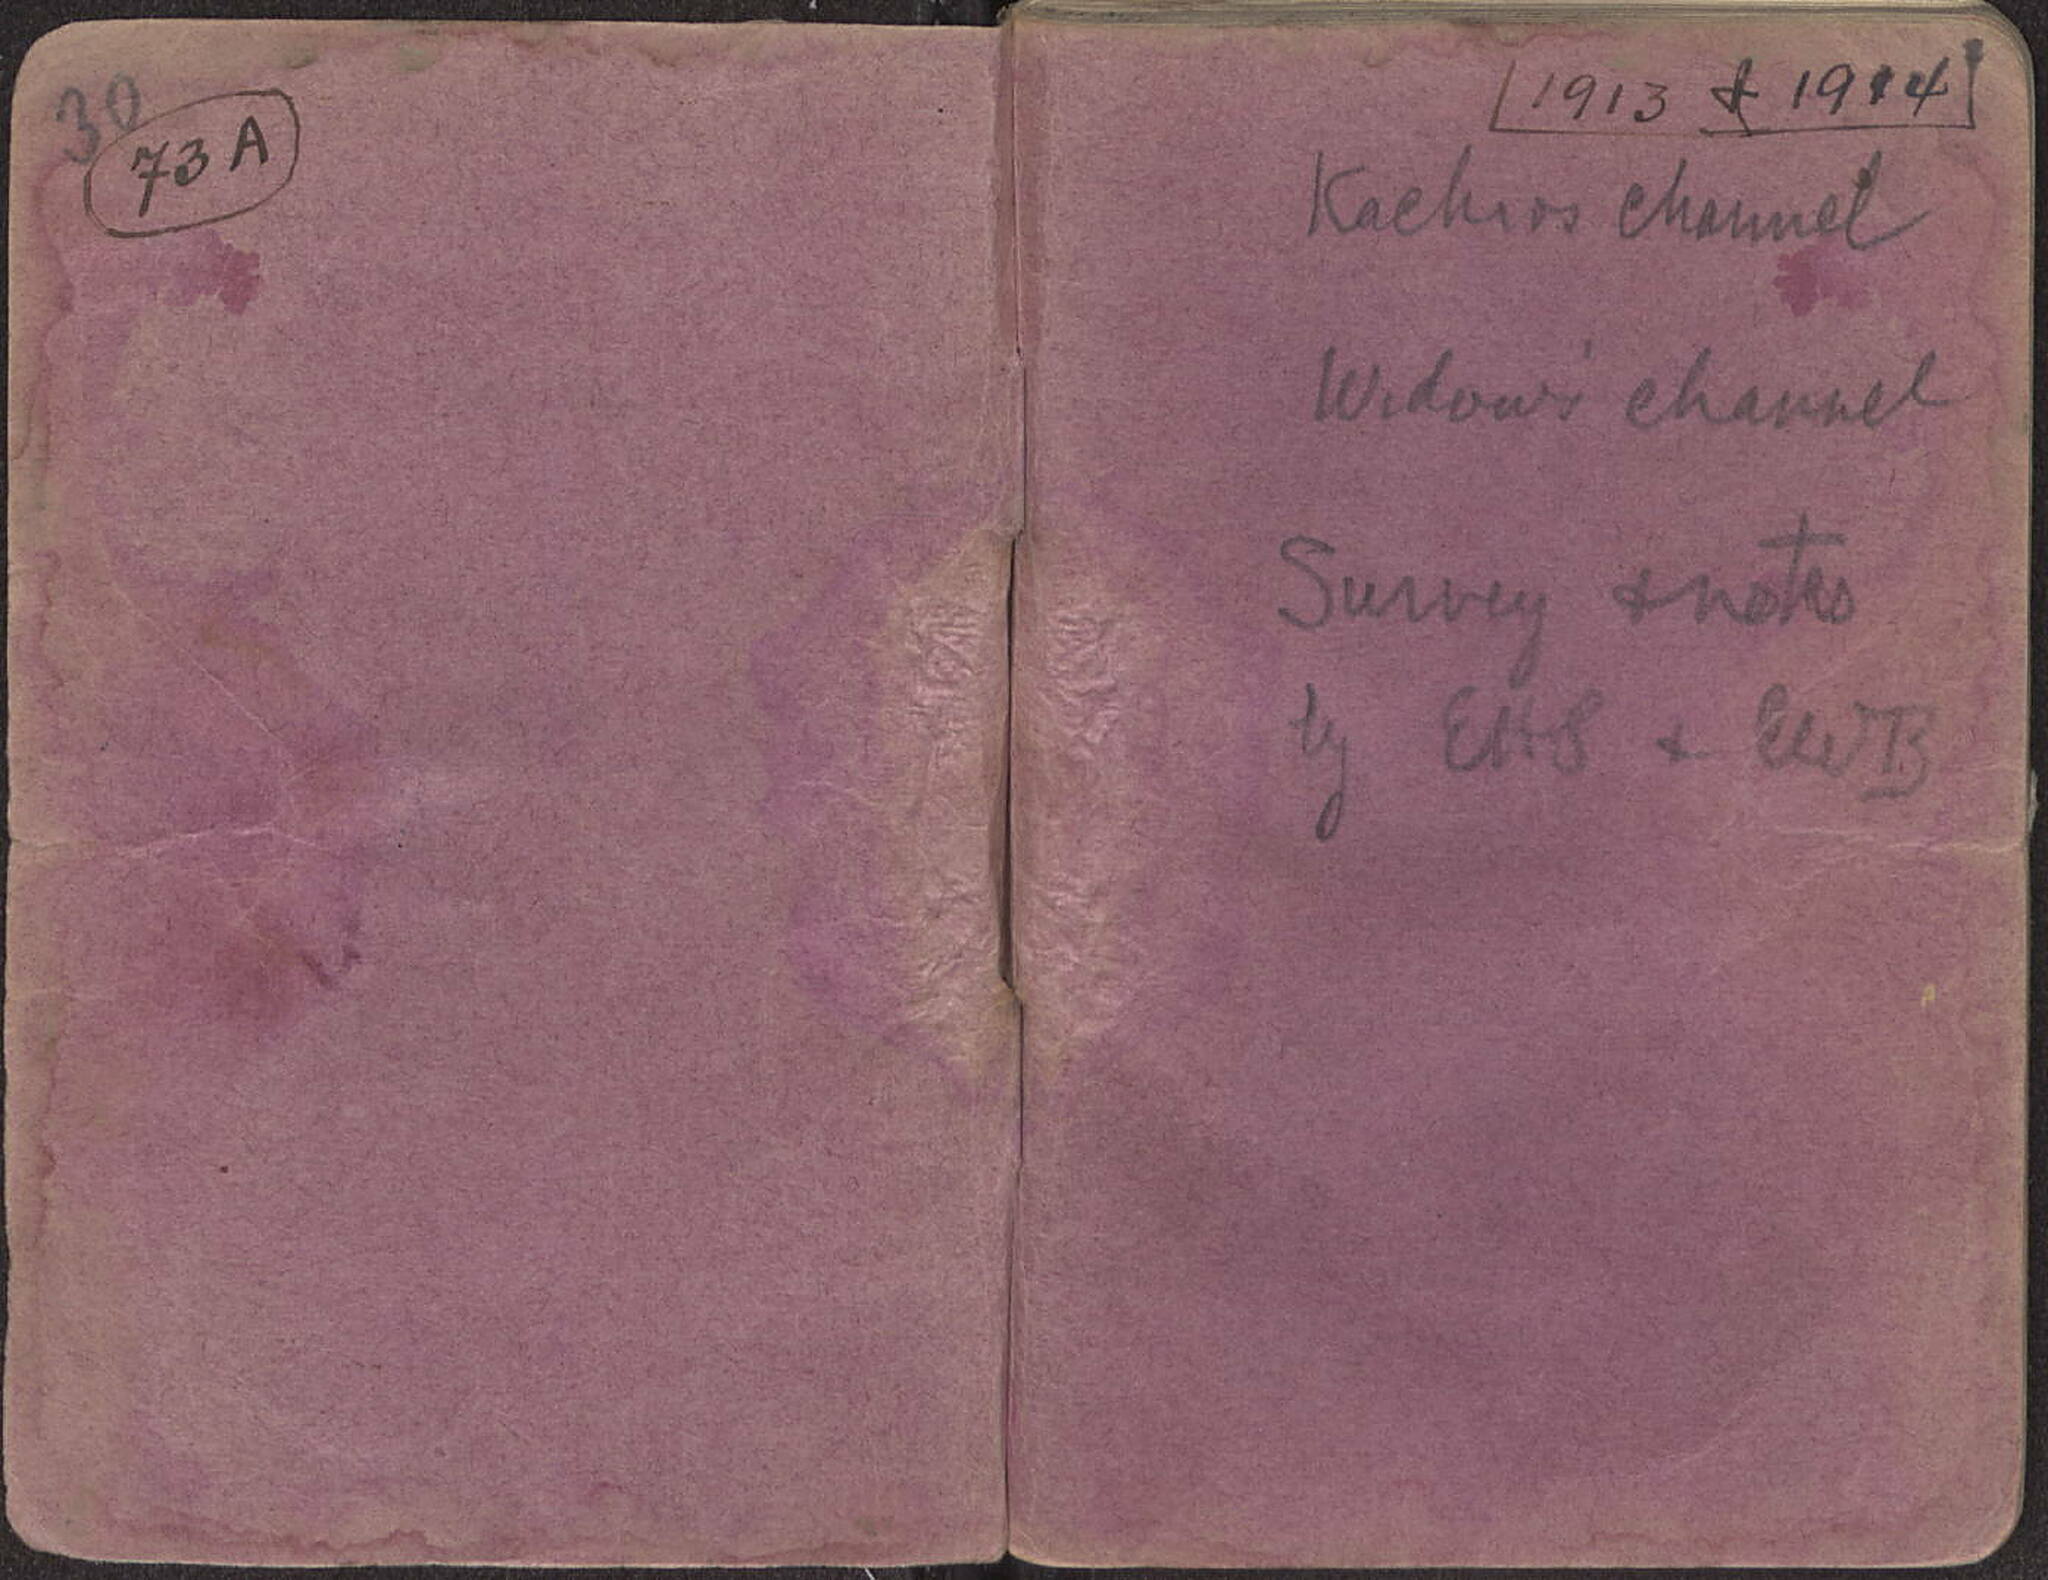 30
73A
1913 & 1914
Kachros channel
Widow's channel
Survey & notes
by EHS & EWB